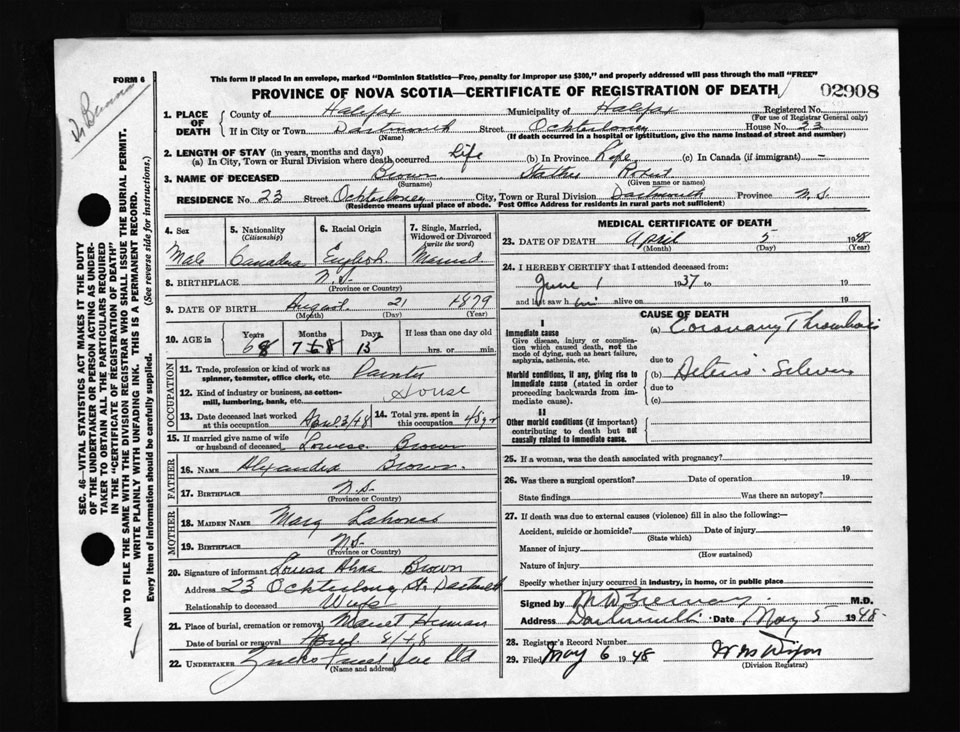 FORM 6
This form if placed in an envelope, marked "Dominion Statistics—Free, penalty for improper use $300," and properly addressed will pass through the mail "FREE"
PROVINCE OF NOVA SCOTIA—CERTIFICATE OF REGISTRATION OF DEATH
02908
1. PLACE OF DEATH
County of Halifax Municipality of Halifax Registered No.
(For use of Registrar General only)
If in City or Town Dartmouth Street Ochterloney House No. 23
(Name) (If death occurred in a hospital or institution, give the name instead of street and number)
2. LENGTH OF STAY (in years, months and days)
(a) In City, Town or Rural Division where death occurred Life (b) In Province Life (c) In Canada (if immigrant) —
3. NAME OF DECEASED Brown Robert
(Surname) (Given name or names)
RESIDENCE No. 23 Street Ochterloney City, Town or Rural Division Dartmouth Province N.S.
(Residence means usual place of abode. Post Office Address for residents in rural parts not sufficient)
4. Sex Male
5. Nationality (Citizenship) Canadian
6. Racial Origin English
7. Single, Married, Widowed or Divorced (write the word) Married
8. BIRTHPLACE N.S.
(Province or Country)
9. DATE OF BIRTH August 21 1879
(Month) (Day) (Year)
10. AGE in Years 68 Months 7 Days 15 If less than one day old
hrs. or min.
OCCUPATION
11. Trade, profession or kind of work as spinner, teamster, office clerk, etc. Painter
12. Kind of industry or business, as cotton-mill, lumbering, bank, etc. House
13. Date deceased last worked at this occupation April 3/48
14. Total yrs. spent in this occupation 45 yr
15. If married give name of wife or husband of deceased Louisa Brown
FATHER
16. NAME Alexander Brown.
17. BIRTHPLACE N.S.
(Province or Country)
MOTHER
18. MAIDEN NAME Mary
19. BIRTHPLACE N.S.
(Province or Country)
20. Signature of informant Louisa Brown
Address 23 Ochterloney St. Dartmouth
Relationship to deceased Wife
21. Place of burial, cremation or removal Mount Herman
Date of burial or removal April 8/48
22. UNDERTAKER Ltd
(Name and address)
MEDICAL CERTIFICATE OF DEATH
23. DATE OF DEATH April 5 1948
(Month) (Day) (Year)
24. I HEREBY CERTIFY that I attended deceased from:
June 1 1937 to 19
and last saw h im alive on 19
CAUSE OF DEATH
I
Immediate cause
Give disease, injury or complication which caused death, not the mode of dying, such as heart failure, asphyxia, asthenia, etc.
(a) Coronary Thrombosis
due to
Morbid conditions, if any, giving rise to immediate cause (stated in order proceeding backwards from immediate cause).
(b)
due to
(c)
II
Other morbid conditions (if important) contributing to death but not causally related to immediate cause.
25. If a woman, was the death associated with pregnancy?
26. Was there a surgical operation? Date of operation 19
State findings Was there an autopsy?
27. If death was due to external causes (violence) fill in also the following:—
Accident, suicide or homicide? Date of injury 19
(State which)
Manner of injury
(How sustained)
Nature of injury
Specify whether injury occurred in industry, in home, or in public place
Signed by M.D.
Address Dartmouth Date May 5 1948.
28. Registrar's Record Number
29. Filed May 6 1948 Dixon
(Division Registrar)
SEC. 46—VITAL STATISTICS ACT MAKES IT THE DUTY
OF THE UNDERTAKER OR PERSON ACTING AS UNDER-
TAKER TO OBTAIN ALL THE PARTICULARS REQUIRED
IN THE "CERTIFICATE OF REGISTRATION OF DEATH"
AND TO FILE THE SAME WITH THE DIVISION REGISTRAR WHO SHALL ISSUE THE BURIAL PERMIT.
WRITE PLAINLY WITH UNFADING INK. THIS IS A PERMANENT RECORD.
Every item of information should be carefully supplied. (See reverse side for instructions.)